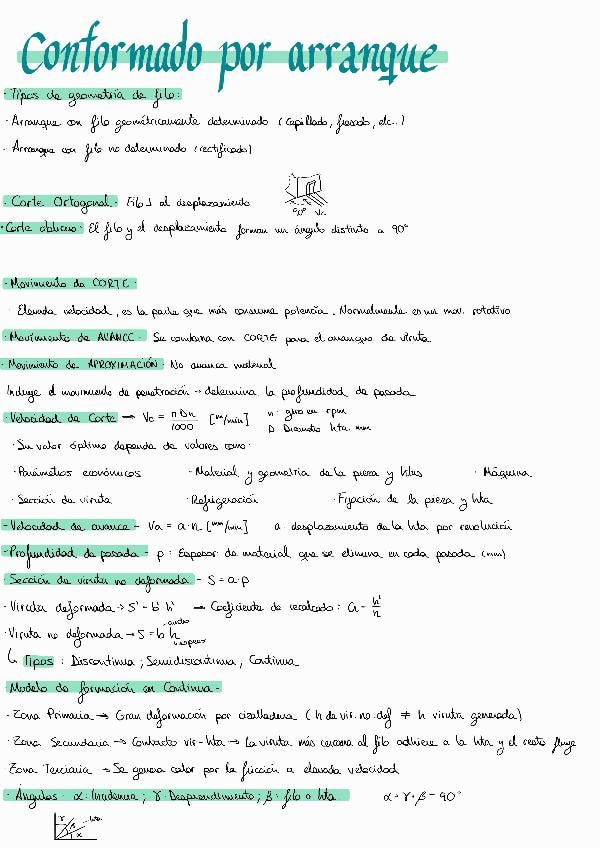 Conformado por arranque
· Tipos de geometría de filo:
· Arranque con filo geométricamente determinado (cepillado, fresado, etc...)
· Arranque con filo no determinado (rectificado)
· Corte Ortogonal - Filo ⊥ al desplazamiento
90° Vc
· Corte oblicuo: El filo y el desplazamiento forman un ángulo distinto a 90°
· Movimiento de CORTE -
· Elevada velocidad, es la parte que más consume potencia. Normalmente es un mov. rotativo
· Movimiento de AVANCE - Se combina con CORTE para el arranque de viruta
· Movimiento de APROXIMACIÓN - No avanza material
Incluye el movimiento de penetración → determina la profundidad de pasada
· Velocidad de Corte → Vc = πDn/1000 [m/min] n: giro en rpm
D Diámetro hta. mm
· Su valor óptimo depende de valores como:
· Parámetros económicos · Material y geometría de la pieza y htas · Máquina
· Sección de viruta · Refrigeración · Fijación de la pieza y hta
· Velocidad de avance - Va = a·n [mm/min] a: desplazamiento de la hta por revolución
· Profundidad de pasada - p: Espesor de material que se elimina en cada pasada (mm)
· Sección de viruta no deformada - S = a·p
· Viruta deformada → S' = b' h' → Coeficiente de recalcado: a = h'/h
· Viruta no deformada → S = b h ancho espesor
Tipos: Discontinua; Semidiscontinua; Continua
Modelo de formación en Continua -
· Zona Primaria → Gran deformación por cizalladura (h de vir. no. def ≠ h viruta generada)
· Zona Secundaria → Contacto vir-hta → La viruta más cercana al filo adhiere a la hta y el resto fluye
Zona Terciaria → Se genera calor por la fricción a elevada velocidad
· Ángulos - α: Incidencia; γ: Desprendimiento; β: filo o hta α+γ+β = 90°
γ hta β α